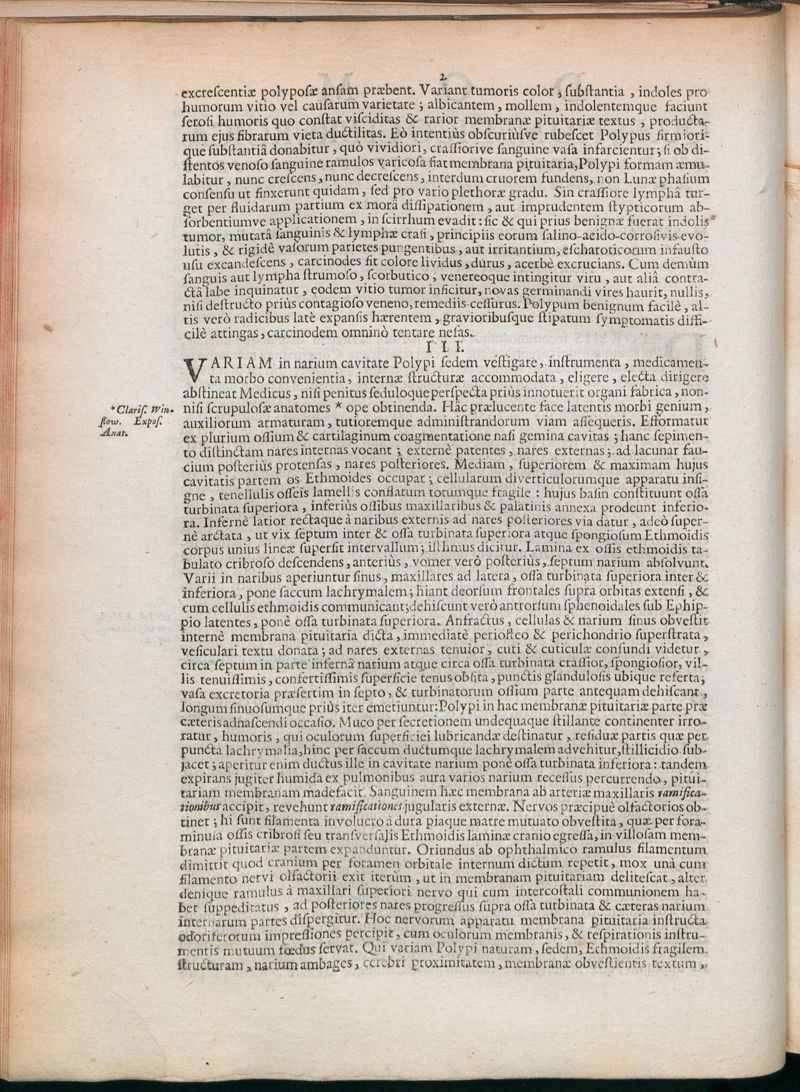 2
excrescentiæ polyposæ ansam præbent. Variant tumoris color, substantia, indoles pro
humorum vitio vel causarum varietate; albicantem, mollem, indolentemque faciunt
serosi humoris quo constat visciditas & rarior membranæ pituitariæ textus, producta-
rum ejus fibrarum vieta ductilitas. Eò intentiùs obscuriùsve rubescet Polypus firmiori-
que substantiâ donabitur, quò vividiori, crassiorive sanguine vasa infarcientur; si ob di-
stentos venoso sanguine ramulos varicosa fiat membrana pituitaria, Polypi formam æmu-
labitur, nunc crescens, nunc decrescens, interdum cruorem fundens, non Lunæ phasium
consensu ut finxerunt quidam, sed pro vario plethoræ gradu. Sin crassiore lymphâ tur-
get per fluidarum partium ex morâ dissipationem, aut imprudentem stypticorum ab-
sorbentiumve applicationem, in scirrhum evadit: sic & qui prius benignæ fuerat indolis
tumor, mutatâ sanguinis & lymphæ crasi, principiis eorum salino-acido-corrosivis evo-
lutis, & rigidè vasorum parietes pungentibus, aut irritantium, escharoticorum infausto
usu excandescens, carcinodes fit colore lividus, durus, acerbè excrucians. Cum demùm
sanguis aut lympha strumoso, scorbutico, venereoque intingitur viru, aut aliâ contra-
ctâ labe inquinatur, eodem vitio tumor inficitur, novas germinandi vires haurit, nullis,
nisi destructo priùs contagioso veneno, remediis cessurus. Polypum benignum facilè, al-
tis verò radicibus latè expansis hærentem, gravioribusque stipatum symptomatis diffi-
cilè attingas, carcinodem omninò tentare nefas.
III.
VARIAM in narium cavitate Polypi sedem vestigare, instrumenta, medicamen-
ta morbo convenientia, internæ structuræ accommodata, eligere, electa dirigere
abstineat Medicus, nisi penitus seduloque perspecta priùs innotuerit organi fabrica, non-
nisi scrupulosæ anatomes * ope obtinenda. Hâc prælucente face latentis morbi genium,
* Clariss. Win-
slow. Expos.
Anat.
auxiliorum armaturam, tutioremque administrandorum viam assequeris. Efformatur
ex plurium ossium & cartilaginum coagmentatione nasi gemina cavitas; hanc sepimen-
to distinctam nares internas vocant; externè patentes, nares externas; ad lacunar fau-
cium posteriùs protensas, nares posteriores. Mediam, superiorem & maximam hujus
cavitatis partem os Ethmoides occupat; cellularum diverticulorumque apparatu insi-
gne, tenellulis osseis lamellis conflatum totumque fragile: hujus basin constituunt ossa
turbinata superiora, inferiùs ossibus maxillaribus & palatinis annexa prodeunt inferio-
ra. Infernè latior rectaque à naribus externis ad nares posteriores via datur, adeò super-
nè arctata, ut vix septum inter & ossa turbinata superiora atque spongiosum Ethmoidis
corpus unius lineæ supersit intervallum; isthmus dicitur. Lamina ex ossis ethmoidis ta-
bulato cribroso descendens, anteriùs, vomer verò posteriùs, septum narium absolvunt.
Varii in naribus aperiuntur sinus, maxillares ad latera, ossa turbinata superiora inter &
inferiora, pone saccum lachrymalem; hiant deorsum frontales supra orbitas extensi, &
cum cellulis ethmoidis communicant; dehiscunt verò antrorsum sphenoidales sub Ephip-
pio latentes, ponè ossa turbinata superiora. Anfractus, cellulas & narium sinus obvestit
internè membrana pituitaria dicta, immediatè periosteo & perichondrio superstrata,
vesiculari textu donata; ad nares externas tenuior, cuti & cuticulæ confundi videtur,
circa septum in parte infernâ narium atque circa ossa turbinata crassior, spongiosior, vil-
lis tenuissimis, confertissimis superficie tenus obsita, punctis glandulosis ubique referta;
vasa excretoria præsertim in septo, & turbinatorum ossium parte antequam dehiscant,
longum sinuosumque priùs iter emetiuntur: Polypi in hac membranæ pituitariæ parte præ
cæteris adnascendi occasio. Muco per secretionem undequaque stillante continenter irro-
ratur, humoris, qui oculorum superficiei lubricandæ destinatur, residuæ partis quæ per
puncta lachrymalia, hinc per saccum ductumque lachrymalem advehitur, stillicidio sub-
jacet; aperitur enim ductus ille in cavitate narium ponè ossa turbinata inferiora: tandem
expirans jugiter humida ex pulmonibus aura varios narium recessus percurrendo, pitui-
tariam membranam madefacit. Sanguinem hæc membrana ab arteriæ maxillaris ramifica-
tionibus accipit, revehunt ramificationes jugularis externæ. Nervos præcipuè olfactorios ob-
tinet; hi sunt filamenta involucro à dura piaque matre mutuato obvestita, quæ per fora-
minula ossis cribrosi seu transversalis Ethmoidis laminæ cranio egressa, in villosam mem-
branæ pituitariæ partem expanduntur. Oriundus ab ophthalmico ramulus filamentum
dimittit quod cranium per foramen orbitale internum dictum repetit, mox unà cum
filamento nervi olfactorii exit iterùm, ut in membranam pituitariam delitescat, alter
denique ramulus à maxillari superiori nervo qui cum intercostali communionem ha-
bet suppeditatus, ad posteriores nares progressus supra ossa turbinata & cæteras narium
internarum partes dispergitur. Hoc nervorum apparatu membrana pituitaria instructa
odoriferorum impressiones percipit, cum oculorum membranis, & respirationis instru-
mentis mutuum fœdus servat. Qui variam Polypi naturam, sedem, Ethmoidis fragilem
structuram, narium ambages, cerebri proximitatem, membranæ obvestientis textum,